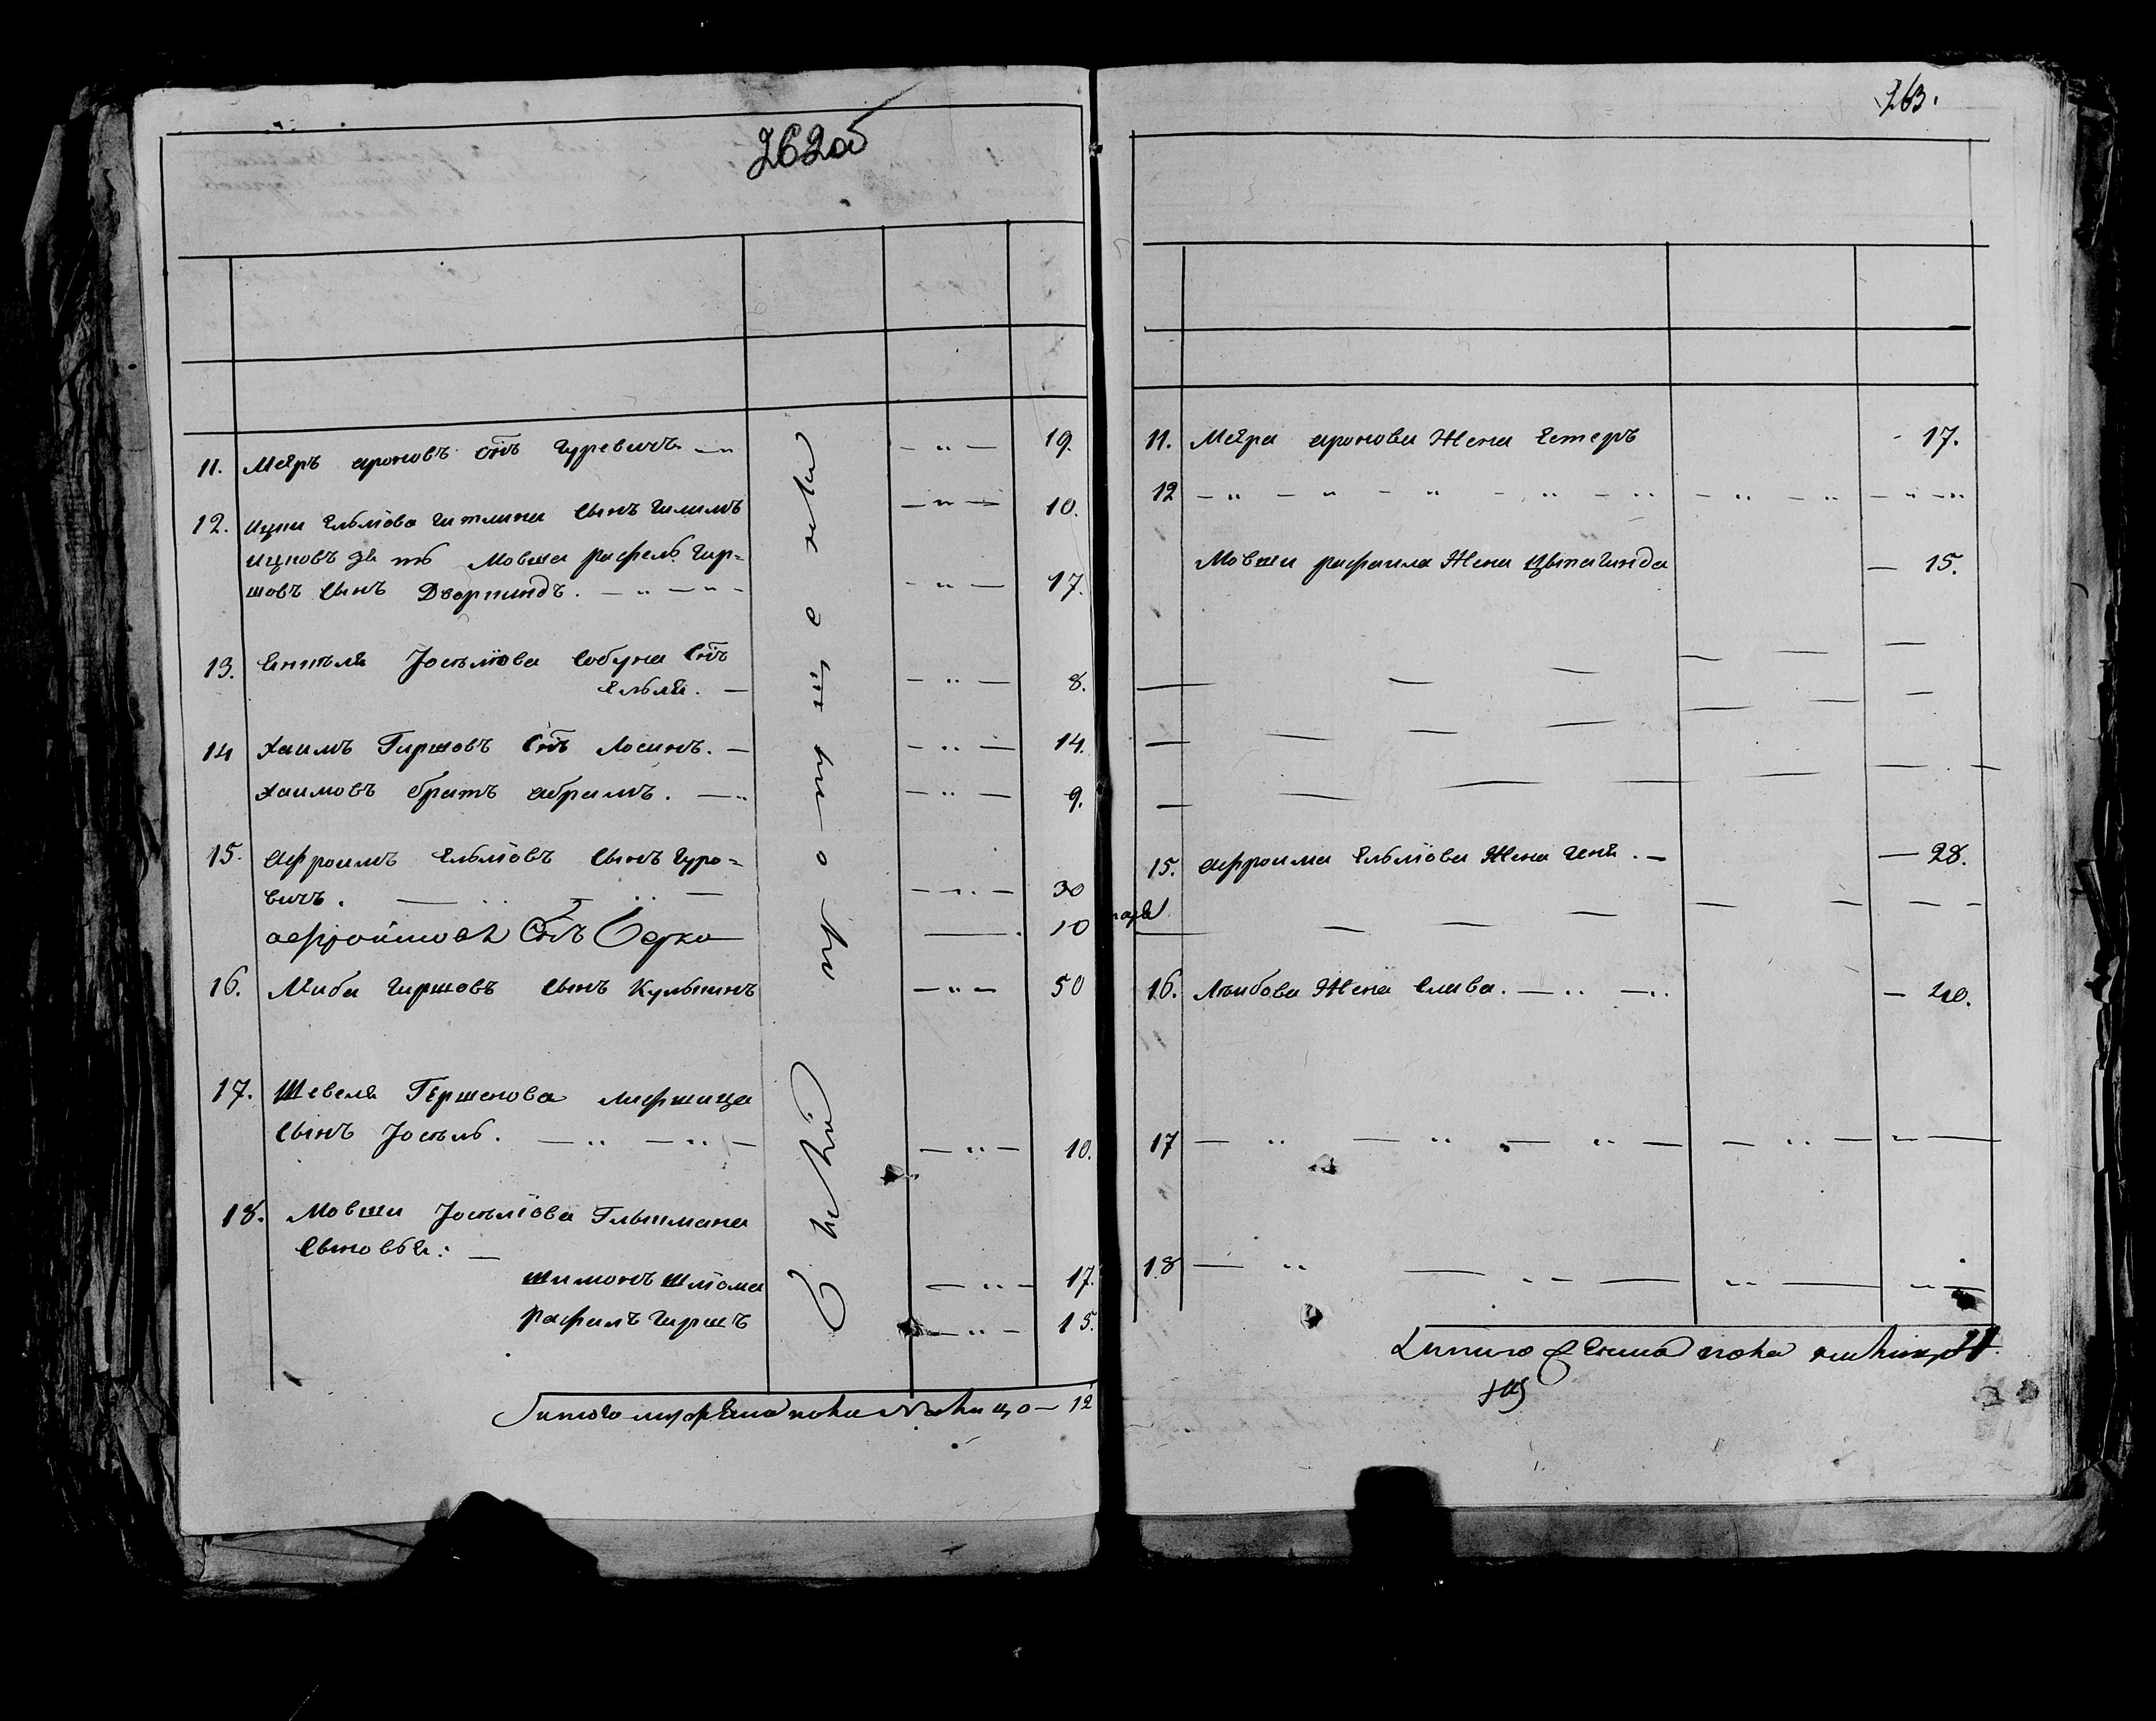 262об
11. Меѣръ ароновъ сн҃ъ Гуревичъ — 19.
12. Ицки Ельліова Гитлина сынъ Гилимъ 10.
Ицковъ зять Мовша рафель Гир=
шовъ сынъ Дворкиндъ. 17.
13. Ентеля Іоселіова Собуна Сн҃ъ
Ельля. — 8.
14 Хаимъ Гиршовъ Сн҃ъ Лосинъ. — 14.
Хаимовъ братъ абрамъ. — 9.
15. Афроимъ Ельліовъ сынъ Гуро=
вичъ. 30
афроймовъ Сн҃ъ Берко 10
16. Лѣиба Гиршовъ сынъ Кулькинъ 50
17. Шевеля Гершонова лифшица
сынъ Іосель. 10.
18. Мовши Іоселіова Гльитмана
сыновья: —
шимонъ Шліома 17.
рафалъ Гиршъ 15.
итого мужеска пола 12
263.
11. Меѣра аронова Жена Естеръ 17.
12
Мовши рафаила Жена Цыпагинда — 15.
15. афроима Ельліова Жена Геня. — 28.
16. Лѣибова Жена Слава. — 40.
17
18
итого женска пола